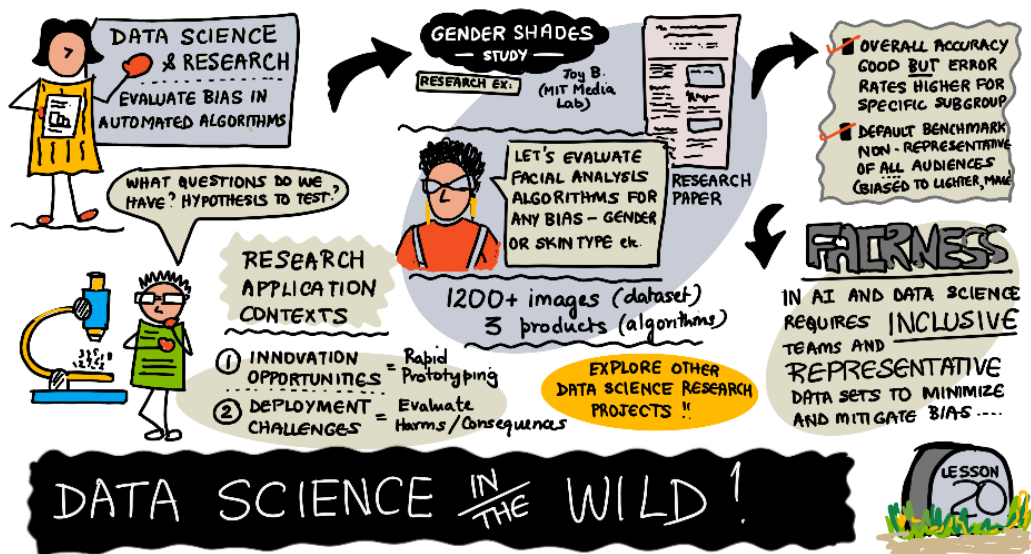 DATA SCIENCE
& RESEARCH
EVALUATE BIAS IN
AUTOMATED ALGORITHMS
WHAT QUESTIONS DO WE
HAVE? HYPOTHESIS TO TEST?
RESEARCH
APPLICATION
CONTEXTS
1 INNOVATION OPPORTUNITIES = Rapid Prototyping
2 DEPLOYMENT CHALLENGES = Evaluate Harms/Consequences
GENDER SHADES
STUDY
RESEARCH EX:
Joy B.
(MIT Media
Lab)
RESEARCH
PAPER
LET'S EVALUATE
FACIAL ANALYSIS
ALGORITHMS FOR
ANY BIAS - GENDER
OR SKIN TYPE etc.
1200+ images (dataset)
3 products (algorithms)
EXPLORE OTHER
DATA SCIENCE RESEARCH
PROJECTS !!
OVERALL ACCURACY
GOOD BUT ERROR
RATES HIGHER FOR
SPECIFIC SUBGROUP
DEFAULT BENCHMARK
NON-REPRESENTATIVE
OF ALL AUDIENCES
(BIASED TO LIGHTER, MALE)
FAIRNESS
IN AI AND DATA SCIENCE
REQUIRES INCLUSIVE
TEAMS AND
REPRESENTATIVE
DATA SETS TO MINIMIZE
AND MITIGATE BIAS ....
DATA SCIENCE IN THE WILD!
LESSON
20